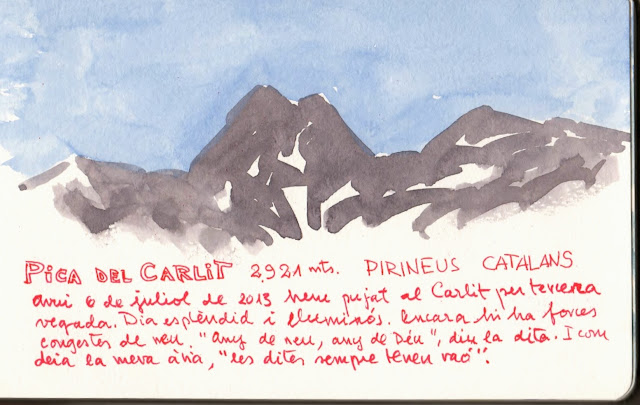 PICA DEL CARLIT 2921 mts. PIRINEUS CATALANS
avui 6 de juliol de 2013 hem pujat al Carlit per tercera
vegada. Dia esplèndid i lluminós. Encara hi ha forces
congestes de neu. "Any de neu, any de Déu", diu la dita. I com
deia la meva àvia, "les dites sempre tenen raó".